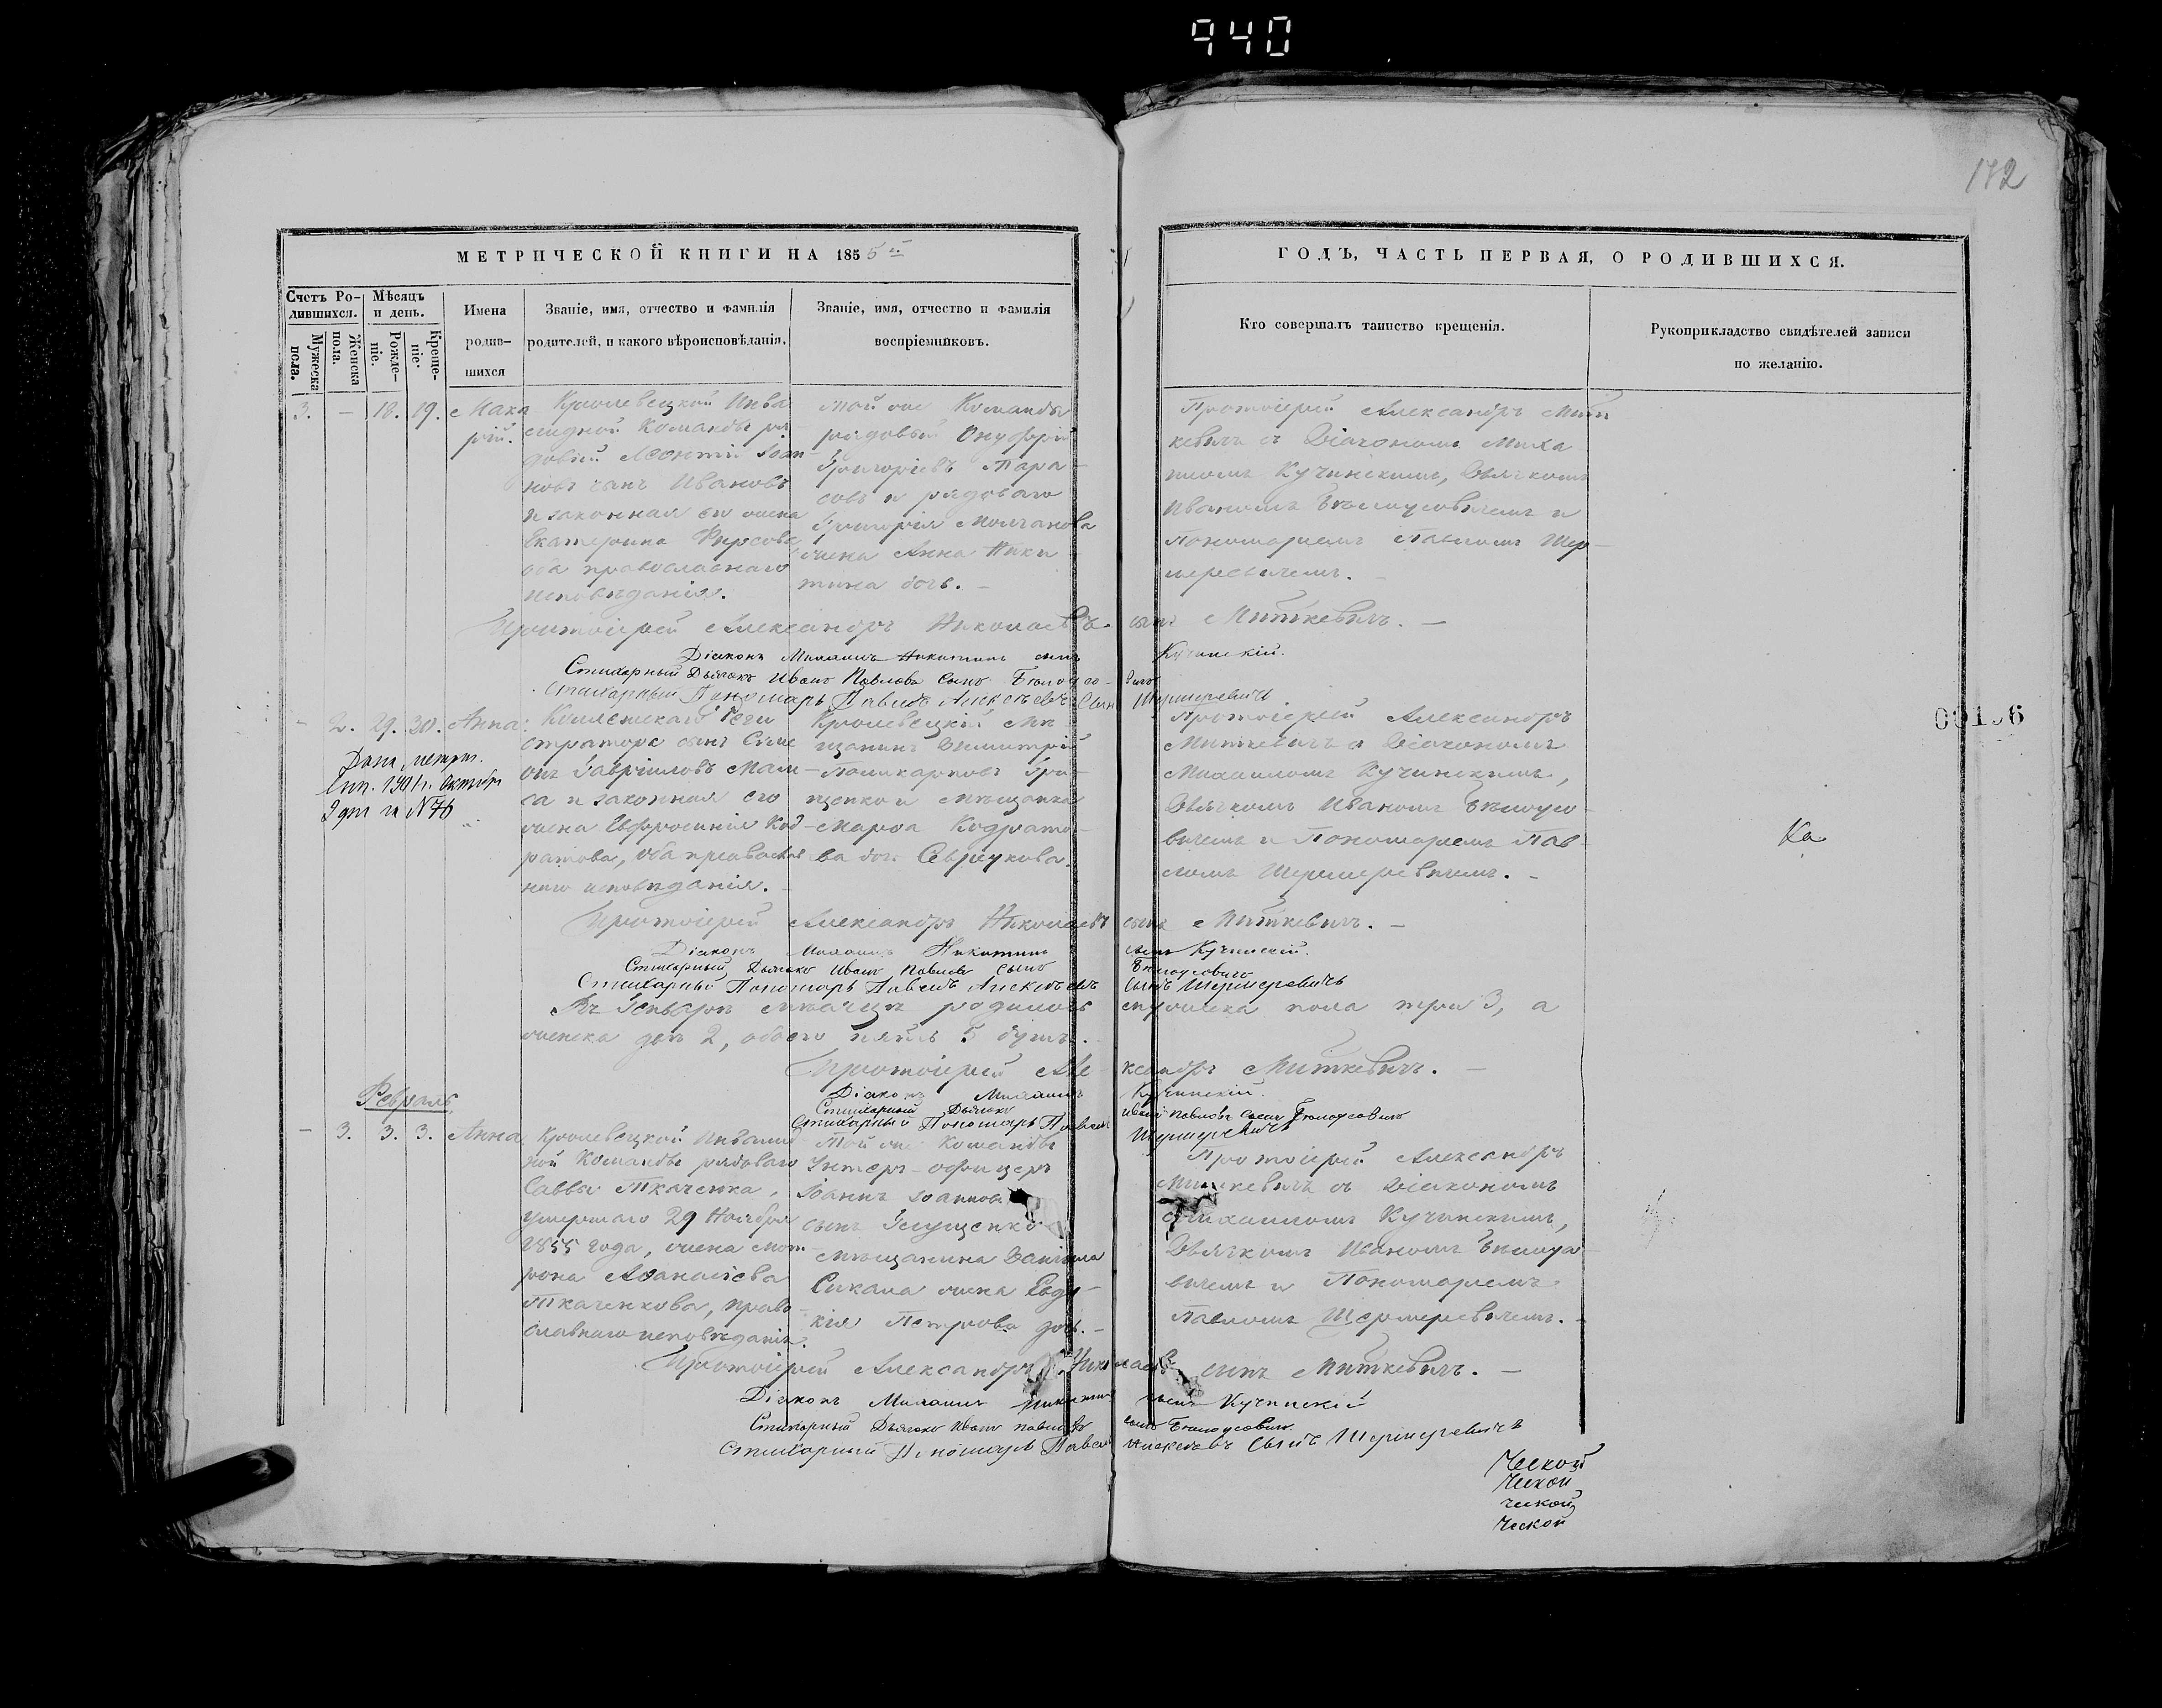 940
172
МЕТРИЧЕСКОЙ КНИГИ НА 1855й
Счетъ Ро-
дившихся.
Мужеска
пола.
Женска
пола.
Мѣсяцъ
и день.
Рожде-
ніе.
Креще-
ніе.
Имена
родив-
шихся
Званіе, имя, отчество и фамилія
родителей, и какого вѣроисповѣданія.
Званіе, имя, отчество и фамилія
воспріемниковъ.
ГОДЪ, ЧАСТЬ ПЕРВАЯ, О РОДИВШИХСЯ.
Кто совершалъ таинство крещенія.
Рукоприкладство свидѣтелей записи
по желанію.
3. — 18. 19. Мака
рій.
Кролевецкой Инва
лидной Команды ря
довый Леонтій Іоан
новъ сынъ Ивановъ
и законная его жена
Екатерина Фирсова
оба православнаго
исповѣданія.
Той же Команды
рядовый Онуфрій
Григоріевъ Тара-
совъ и рядоваго
Григорія Молчанова
жена Анна Ники-
тина дочь. —
Протоіерей Александръ Мит
кевичъ съ Діакономъ Миха
иломъ Кучинскимъ, Дьячкомъ
Иваномъ Бѣлоусовичемъ и
Пономаремъ Павломъ Шер-
меревичемъ. —
Протоіерей Александръ Николаевъ сынъ Миткевичъ. —
Діаконъ Михаилъ Никитинъ сынъ Кучинскій.
Стихарный Дьячокъ Иванъ Павловъ сынъ Белоусо-вичъ
Стихарный Пономарь Павелъ Алексѣевъ Сынъ Шермеревичъ
- 2. 29. 30. Анна.
Дана метри.
1901 г. октября
№ 76
Коллежскаго Реги
стратора сынъ Симе
онъ Гавріиловъ
са и законная его
жена Ефросинія Код-
ратова, оба православ
наго исповѣданія. —
Кролевецкій мѣ-
щанинъ Димитрій
Поликарповъ Гри-
щенко и мѣщанка
Марѳа Кодрато-
ва дочь Севрукова.
Протоіерей Александръ
Миткевичъ съ Діакономъ
Михаиломъ Кучинскимъ,
Дьячкомъ Иваномъ Бѣлоусо-
вичемъ и Пономаремъ Пав-
ломъ Шермеревичемъ. —
00196
Ка
Протоіерей Александръ Николаевъ сынъ Миткевичъ. —
Діаконъ Михаилъ Никитинъ сынъ Кучинскій.
Стихарный Дьячокъ Иванъ Павловъ сынъ Белоусовичъ
Стихарный Пономарь Павелъ Алексѣевъ Сынъ Шермеревичъ
Въ Генварѣ мѣсяцѣ родилось мужеска пола три 3, а
женска двѣ 2, обоего пять 5 душъ.
Протоіерей Александръ Миткевичъ. —
Діаконъ Михаилъ Кучинскій.
Стихарный Дьячокъ Иванъ Павловъ сынъ Белоусовичъ
Стихарный Пономарь Павелъ Шермеревичъ
Февраль.
— 3. 3. 3. Анна
Кролевецкой Инвалид
ной Команды рядоваго
Саввы Ткаченка,
умершаго 29 Ноября
1855 года, жена Мат
рона Аѳанасіева
Ткаченкова, право-
славнаго исповѣданія.
Той же Команды
Унтеръ-офицеръ
Іоаннъ Іоанновъ
сынъ
мѣщанина Даніила
Сикала жена Евдо-
кія Петрова дочь. —
Протоіерей Александръ
Миткевичъ съ Діакономъ
Михаиломъ Кучинскимъ,
Дьячкомъ Иваномъ Бѣлоусо-
вичемъ и Пономаремъ
Павломъ Шермеревичемъ. —
Протоіерей Александръ Николаевъ сынъ Миткевичъ. —
Діаконъ Михаилъ Никитинъ сынъ Кучинскій
Стихарный Дьячокъ Иванъ Павловъ сынъ Белоусовичъ
Стихарный Пономарь Павелъ Алексѣевъ Сынъ Шермеревичъ
Ческой
Ческой
ческой
Ческой